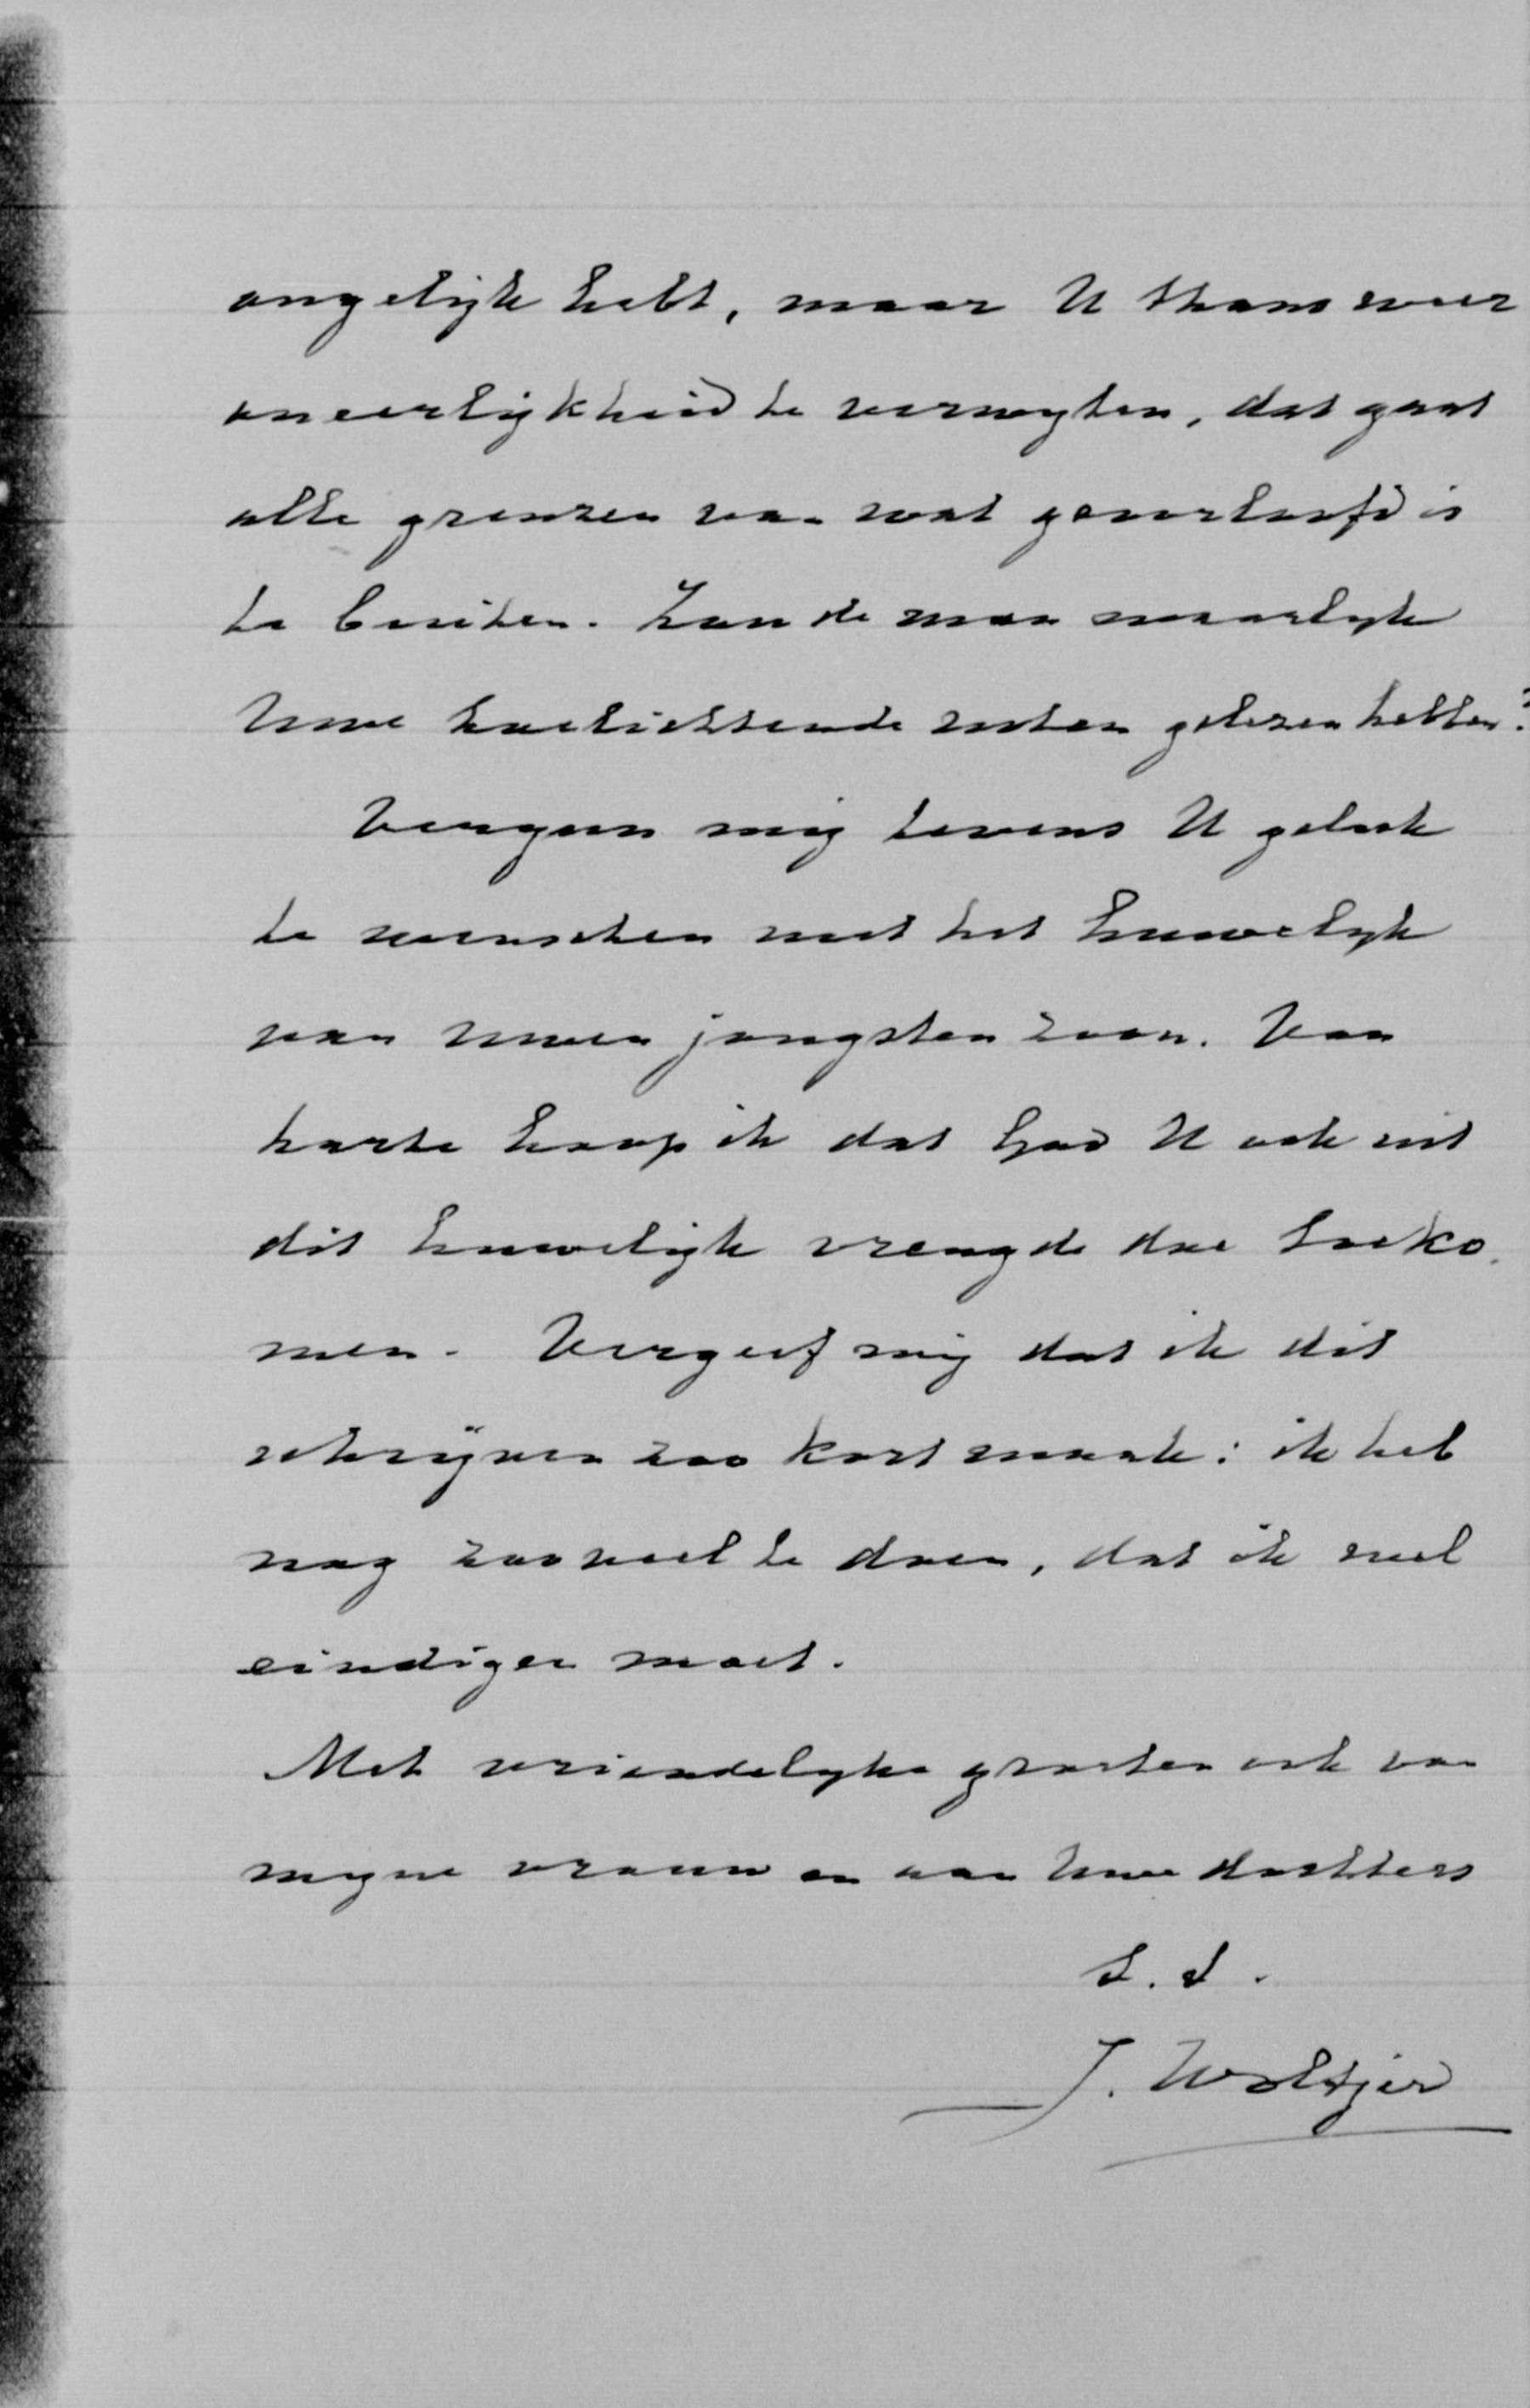 ongelijk hebt, maar U thans weer
oneerlijkheid te verwyten, dat gaat
alle grenzen van wat geoorloofd is
te buiten. Zou de man waarlyk
Uwe toelichtende noten gelezen hebben?
Vergun mij tevens U geluk
te wenschen met het huwelyk
van Uwen jongsten zoon. Van
harte hoop ik dat God U ook uit
dit huwelijk vreugde doe toeko
men. Vergeef mij dat ik dit
schrijven zoo kort maak: ik heb
nog zooveel te doen, dat ik wel
eindigen moet.
Met vriendelyke groeten ook van
myne vrouw en aan Uwe dochters
t. t.
J. Woltjer